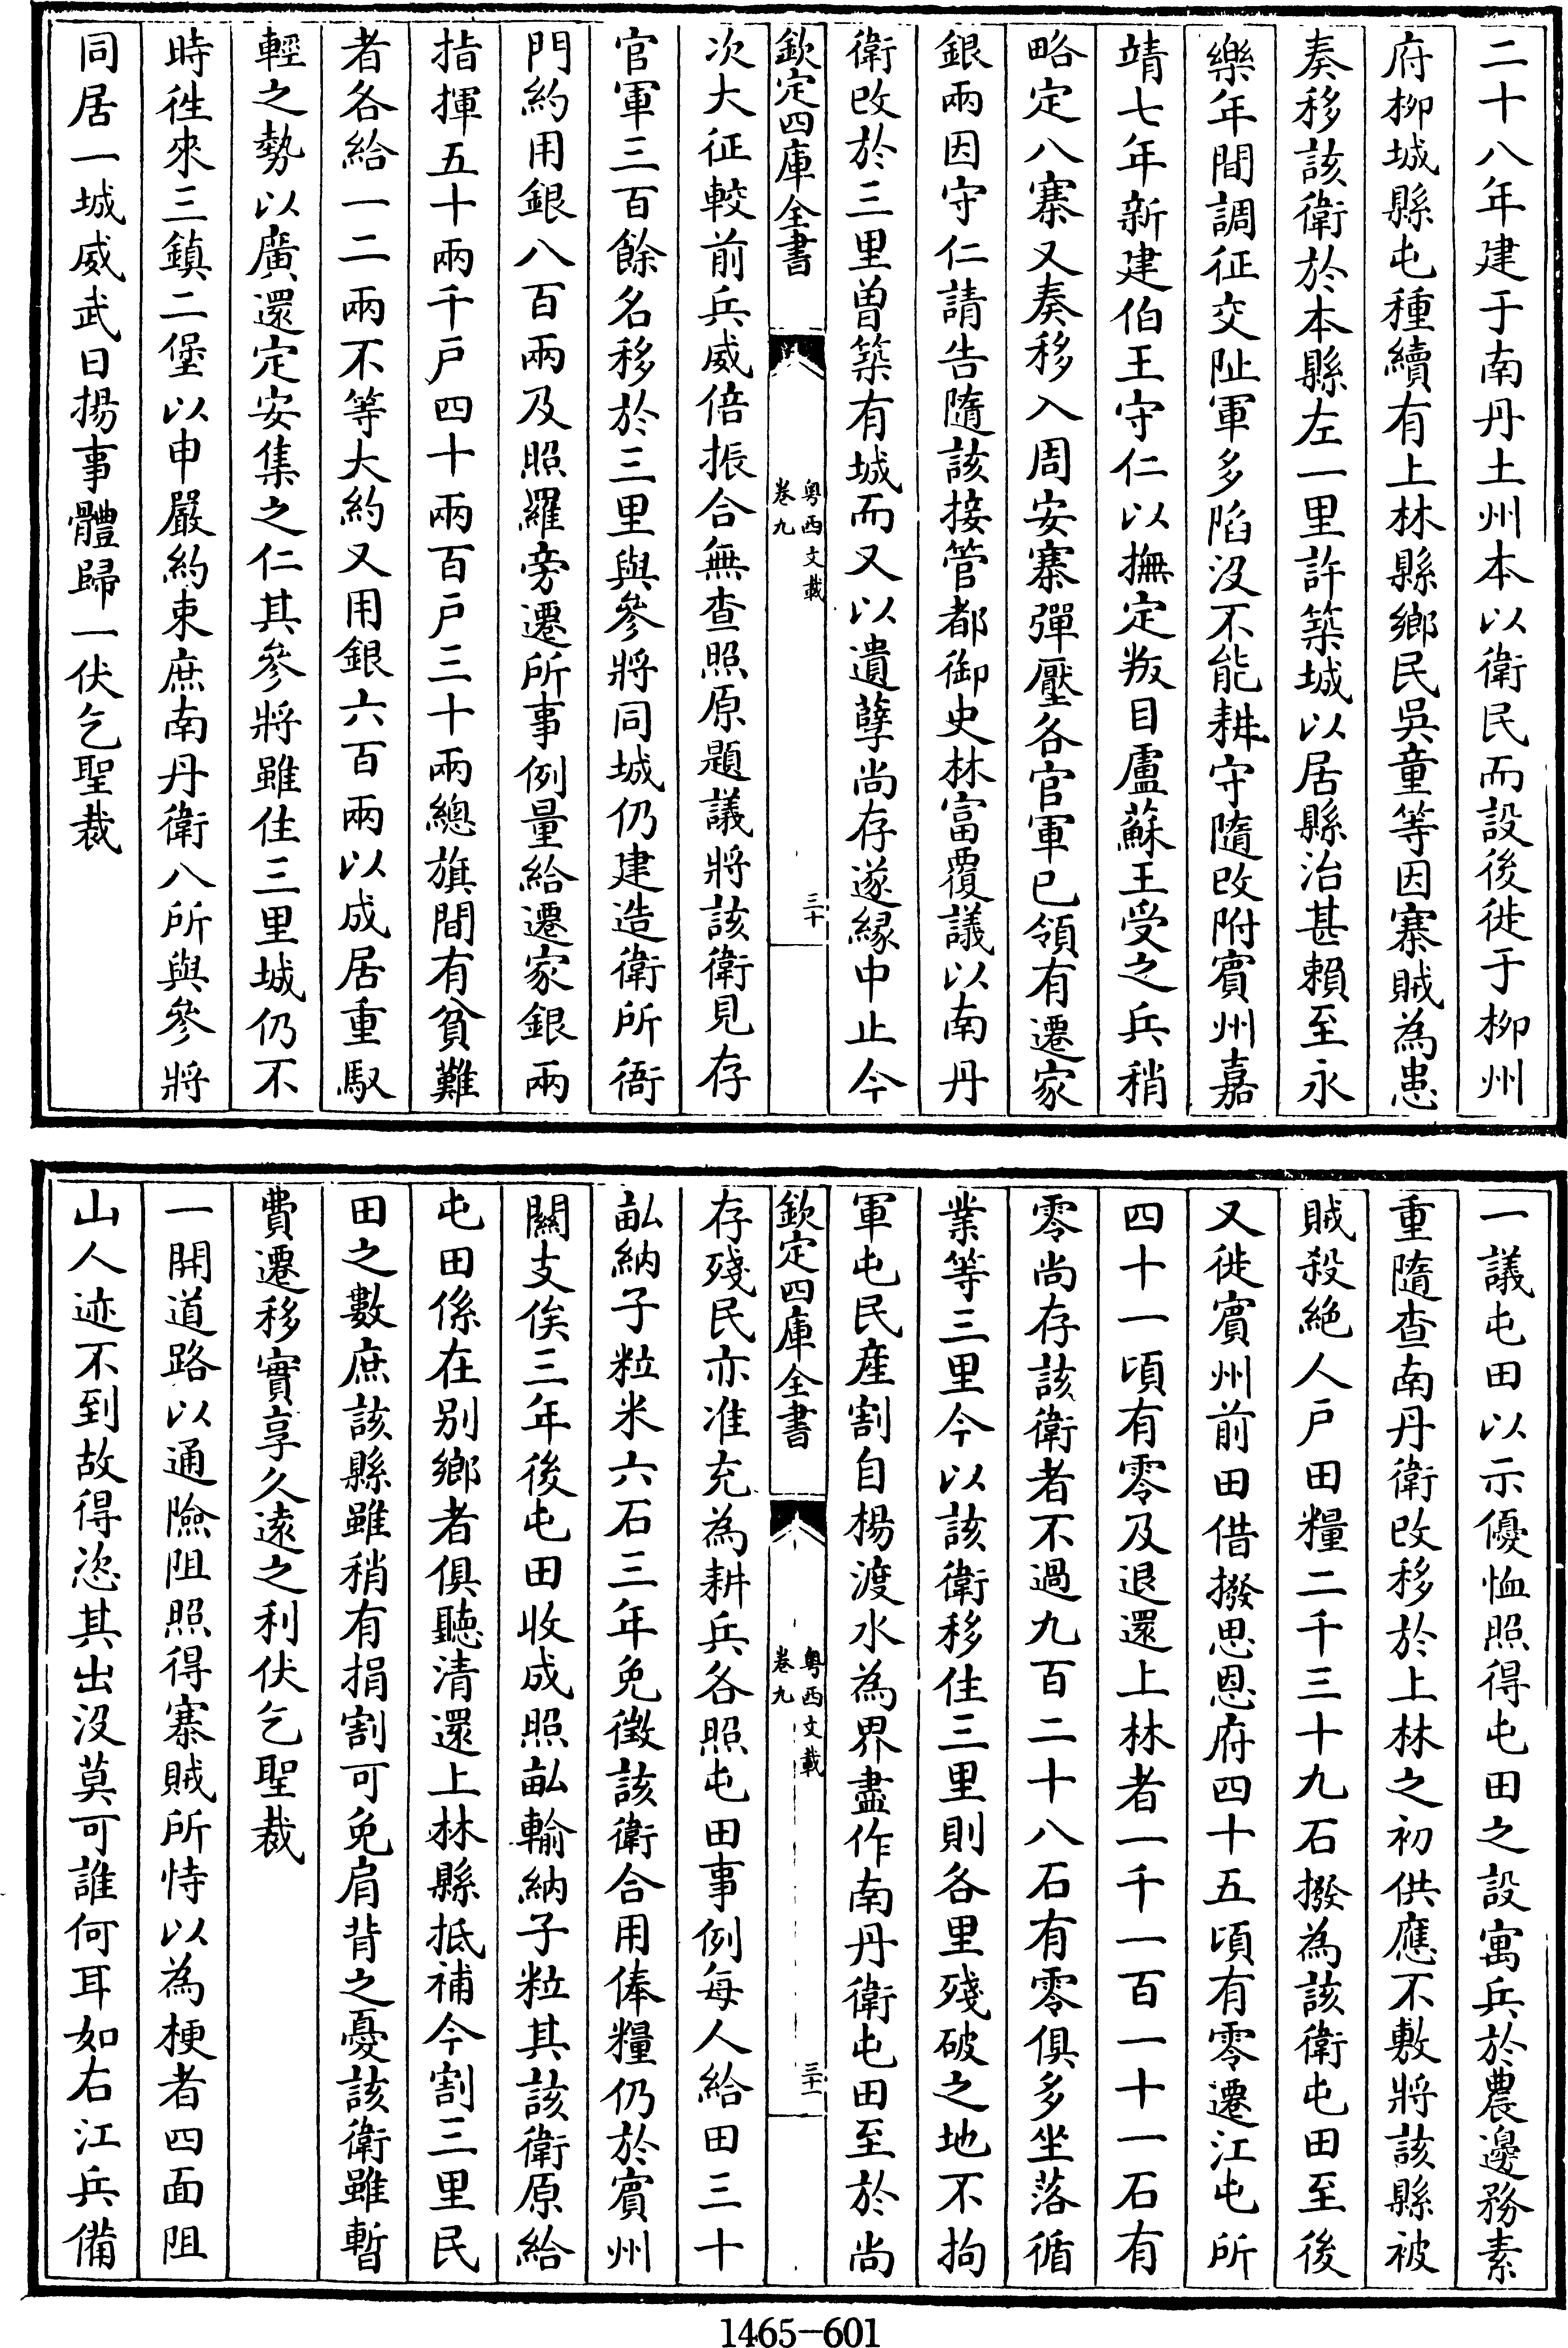 二十八年建于南丹土州本以衛民而設後徙于柳州
府柳城縣屯種續有上林縣鄉民吳童等因寨賊為患
奏移該衛於本縣左一里許築城以居縣治甚賴至永
樂年間調征交阯軍多陷沒不能耕守隨改附賓州嘉
靖七年新建伯王守仁以撫定叛目盧蘇王受之兵稍
略定八寨又奏移入周安寨彈壓各官軍已領有遷家
銀兩因守仁請告隨該接管都御史林富覆議以南丹
衛改於三里曽築有城而又以遺孽尚存遂緣中止今
欽定四庫全書
粤西文載
卷九
三十
次大征較前兵威倍振合無查照原題議將該衛見存
官軍三百餘名移於三里與參將同城仍建造衛所衙
門約用銀八百兩及照羅旁遷所事例量給遷家銀兩
指揮五十兩千戶四十兩百戶三十兩總旗間有貧難
者各給一二兩不等大約又用銀六百兩以成居重馭
輕之勢以廣還定安集之仁其參將雖住三里城仍不
時徃來三鎮二堡以申嚴約束庶南丹衛八所與參將
同居一城威武日揚事體歸一伏乞聖裁
一議屯田以示優恤照得屯田之設寓兵於農邊務素
重隨查南丹衛改移於上林之初供應不敷將該縣被
賊殺絕人戶田糧二千三十九石撥為該衛屯田至後
又徙賓州前田借撥思恩府四十五頃有零遷江屯所
四十一頃有零及退還上林者一千一百一十一石有
零尚存該衛者不過九百二十八石有零俱多坐落循
業等三里今以該衛移住三里則各里殘破之地不拘
軍屯民產割自楊渡水為界盡作南丹衛屯田至於尚
欽定四庫全書
粤西文載
卷九
三十一
存殘民亦准充為耕兵各照屯田事例每人給田三十
畆納子粒米六石三年免徵該衛合用俸糧仍於賓州
關支俟三年後屯田收成照畆輸納子粒其該衛原給
屯田係在別鄉者俱聽清還上林縣抵補今割三里民
田之數庶該縣雖稍有捐割可免肩背之憂該衛雖暫
費遷移實享久遠之利伏乞聖裁
一開道路以通險阻照得寨賊所恃以為梗者四面阻
山人迹不到故得恣其出沒莫可誰何耳如右江兵備
1465-601